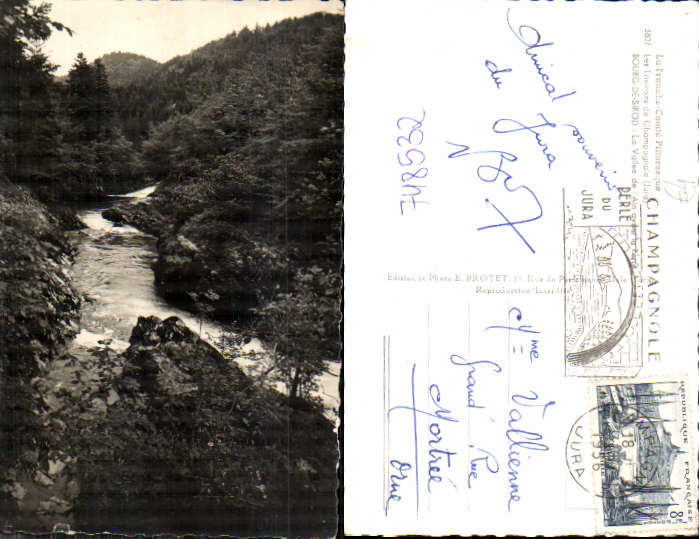 La Franche-Comté Pittoresque
3807 Les Environs de Champagnole (Jura)
BOURG-DE-SIROD - La Vallée de l'Ain
Amical souvenir
du Jura
748532
Edition et Photo E. PROTET, 15, Rue de
Reproduction Interdite
CHAMPAGNOLE
PERLE
DU
JURA
Mme Vallienne
Grand' Rue
Mortrée
Orne
REPUBLIQUE FRANÇAISE
8F
18
1956
JURA